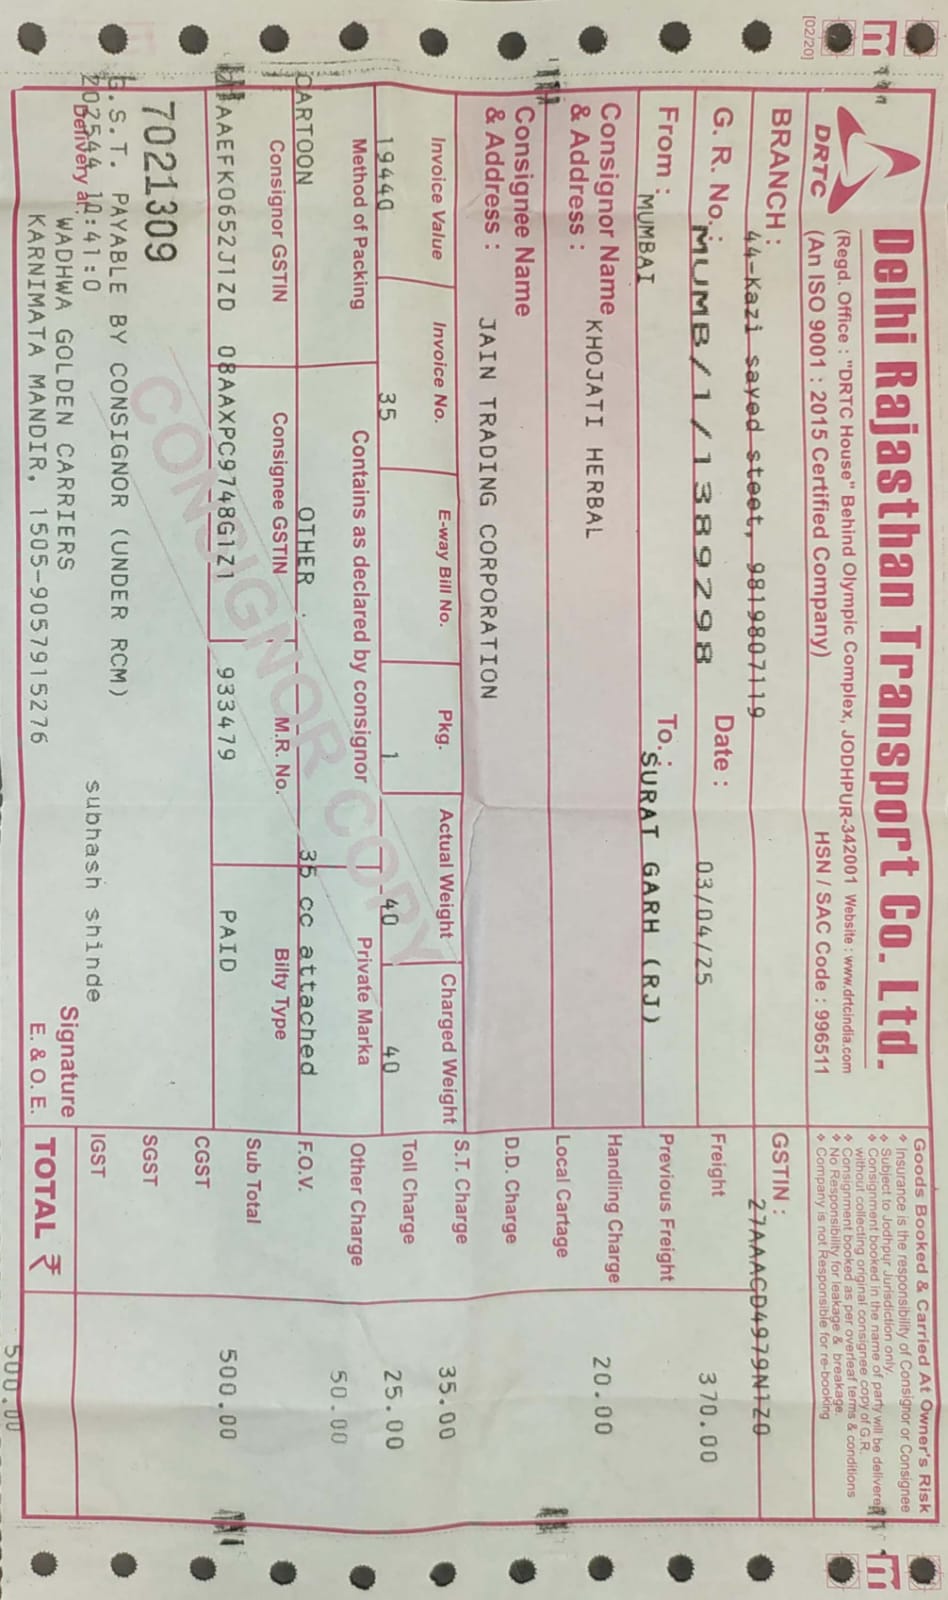 [02/20]
DRTC
Delhi Rajasthan Transport Co. Ltd.
(Regd. Office : "DRTC House" Behind Olympic Complex, JODHPUR-342001 Website : www.drtcindia.com
(An ISO 9001 : 2015 Certified Company) HSN / SAC Code : 996511
Goods Booked & Carried At Owner's Risk
❖ Insurance is the responsibility of Consignor or Consignee
❖ Subject to Jodhpur Jurisdiction only.
❖ Consignment booked in the name of party will be delivered
without collecting original consignee copy of G.R.
❖ Consignment booked as per overleaf terms & conditions
❖ No Responsibility for leakage & breakage.
❖ Company is not Responsible for re-booking
BRANCH : 44-Kazi sayed steet, 9819807119
GSTIN : 27AAACD4979N1Z0
G. R. No.: MUMB/1/1389298 Date : 03/04/25
Freight 370.00
From : MUMBAI To.: SURAT GARH (RJ)
Previous Freight
Consignor Name
& Address : KHOJATI HERBAL
Handling Charge 20.00
Local Cartage
Consignee Name
& Address : JAIN TRADING CORPORATION
D.D. Charge
S.T. Charge 35.00
Invoice Value Invoice No. E-way Bill No. Pkg. Actual Weight Charged Weight
19440 35 1 40 40
Toll Charge 25.00
Method of Packing Contains as declared by consignor Private Marka
Other Charge 50.00
CARTOON OTHER 35 cc attached
F.O.V.
Consignor GSTIN Consignee GSTIN M.R. No. Bilty Type
Sub Total 500.00
AAEFK0652J1ZD 08AAXPC9748G1Z1 933479 PAID
CGST
CONSIGNOR COPY
7021309
SGST
G.S.T. PAYABLE BY CONSIGNOR (UNDER RCM)
IGST
202544 10:41:0 subhash shinde
Delivery at:
WADHWA GOLDEN CARRIERS
Signature
KARNIMATA MANDIR, 1505-9057915276
E. & O. E.
TOTAL ₹ 500.00